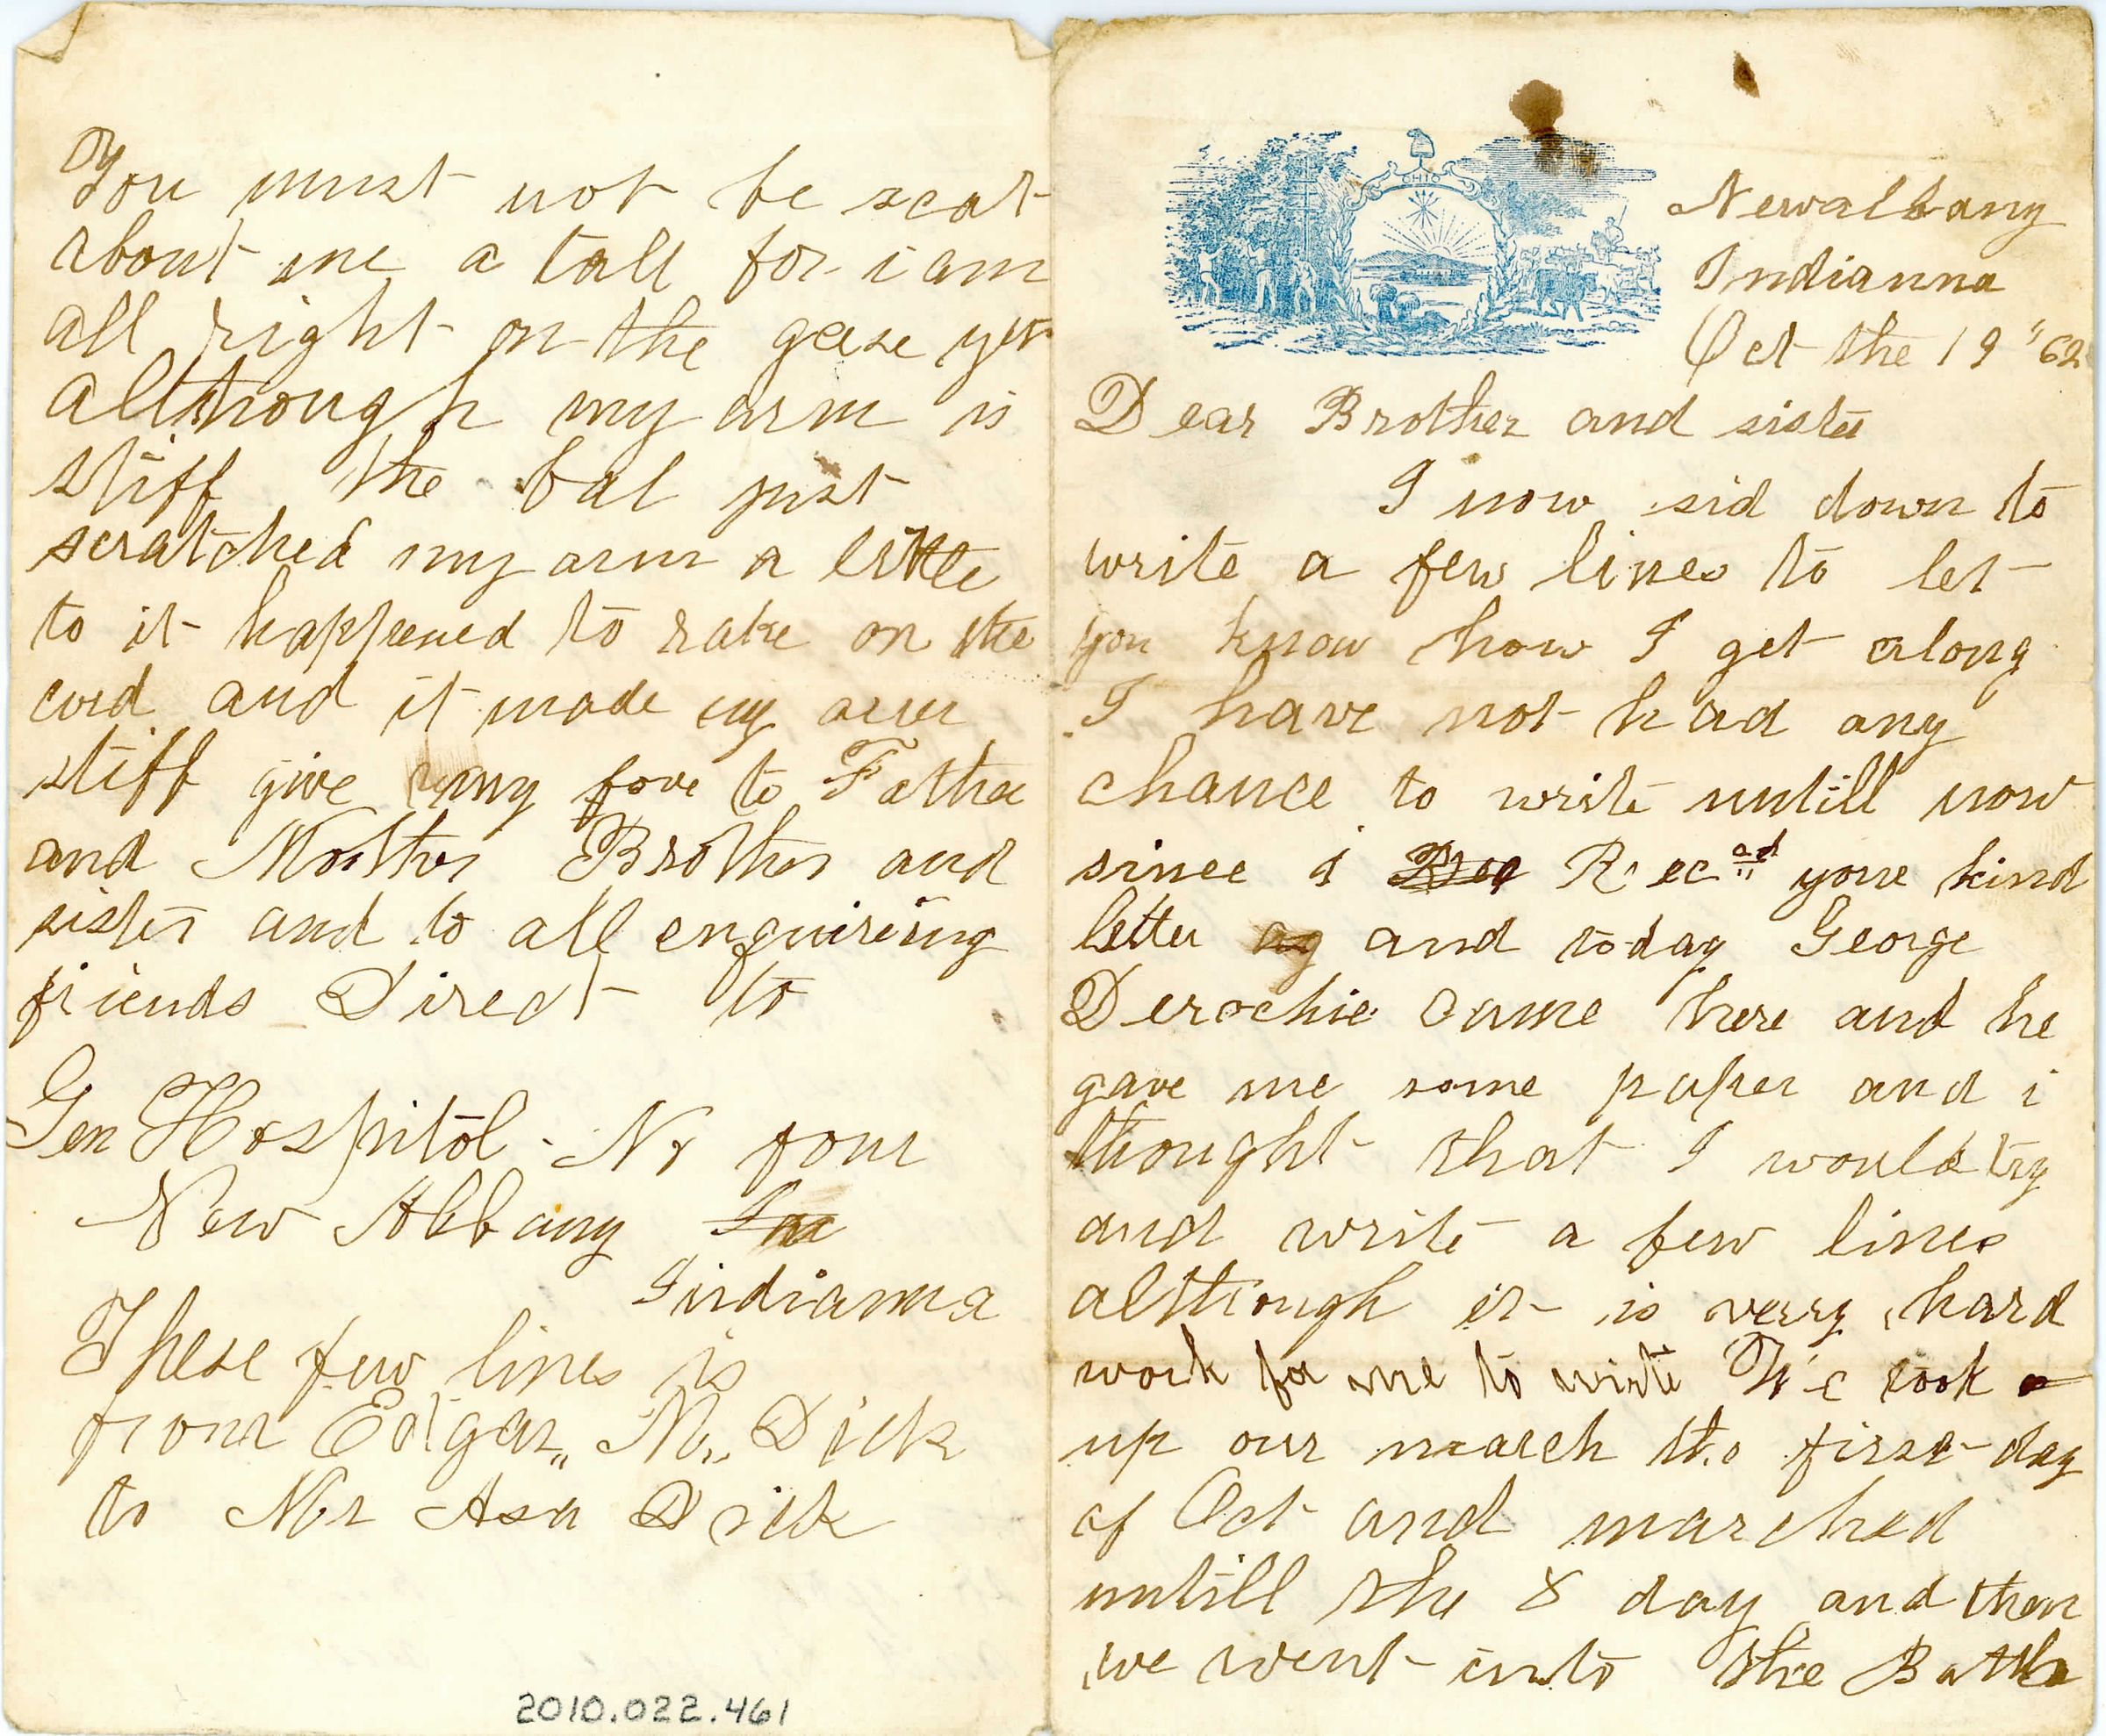 OHIO
Newalbany
Indianna
Oct the 19 "62
Dear Brother and sister
I now sid down to
write a few lines to let
you know how I get along
I have not had any
chance to write untill now
since I Rec Reced your kind
letter ag and today George
Derochie came here and he
gave me some paper and i
thought that I would try
and write a few lines
although it is verry hard
work for me to write We took
up our march the first day
of Oct and marched
untill the 8 day and then
we went into the Battle
You must not be scat
about me a tall for i am
all right on the geese yet
although my arm is
stiff the bal just
scratched my arm a little
to it happened to rake on the
cord and it made my arm
stiff give my love to Father
and Mother Brother and
sister and to all enquireing
friends Direct to
Gen Hospitol Nr four
New Albany In
Indianna
These few lines is
from Edgar,, M,, Dick
to Mr Asa Dick
2010.022.461